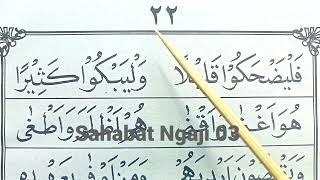 ٢٢
فَلْيَضْحَكُوْا قَلِيْلًا وَلْيَبْكُوْا كَثِيْرًا
هُوَ اَغْنٰى وَاَقْنٰى هُمْ اَظْلَمَ وَاَطْغٰى
Sahabat Ngaji 03
وَيَقْبِضُوْنَ اَيْدِيَهُمْ